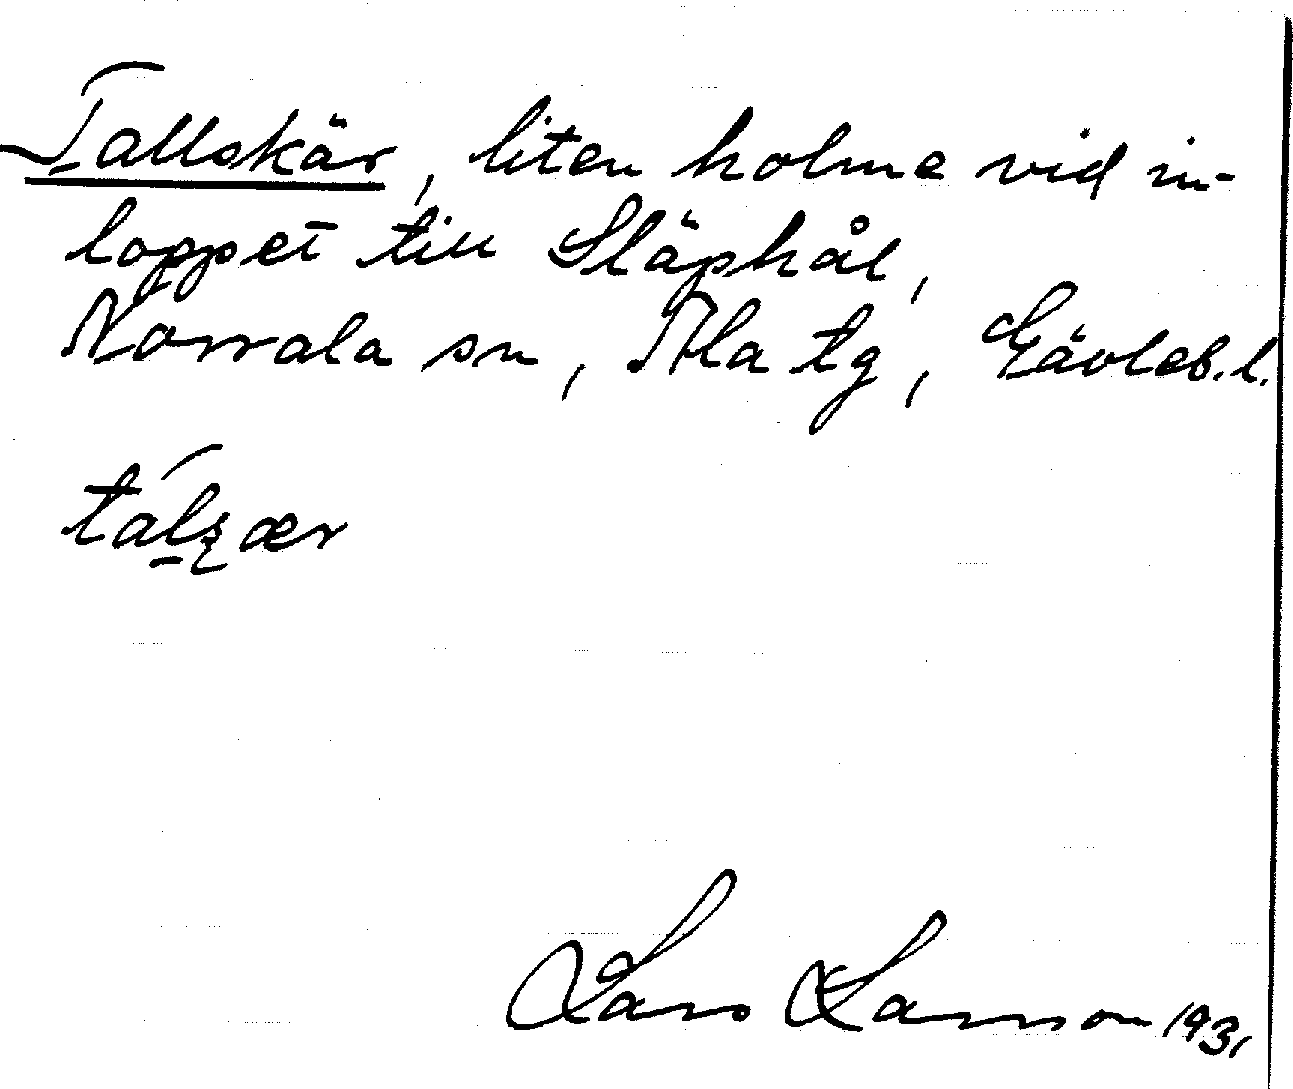 Tallskär, liten holme vid in-
loppet till Släphål,
Norrala sn, Ala tg, Gävleb. l.
Lars Larsson 1931